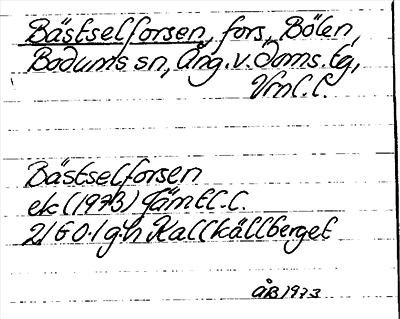 Bästselforsen, fors, Bölen,
Bodums sn, Ång. v. doms. tg,
Vnl. l.
Bästselforsen
ek (1973) Jämtl. l.
21 G 0-1 g.h Kallkällberget
ÅB 1973